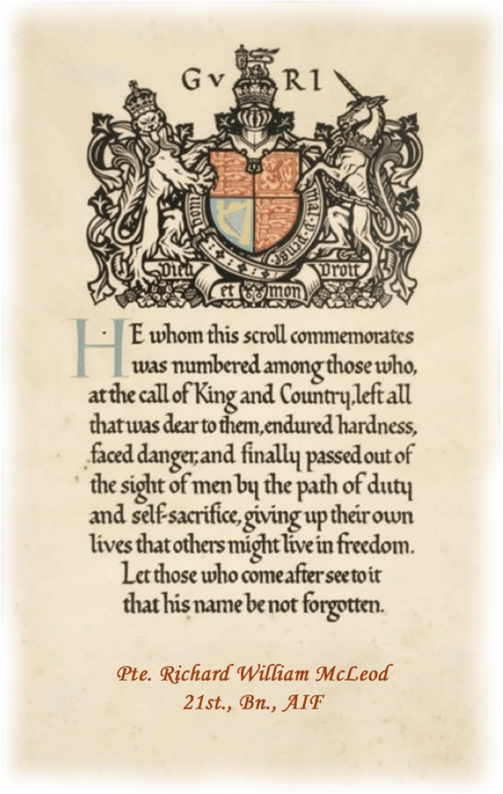 GV RI
honi
mal·y·pense
Dieu
Droit
et mon
HE whom this scroll commemorates
was numbered among those who,
at the call of King and Country, left all
that was dear to them, endured hardness,
faced danger, and finally passed out of
the sight of men by the path of duty
and self-sacrifice, giving up their own
lives that others might live in freedom.
Let those who come after see to it
that his name be not forgotten.
Pte. Richard William McLeod
21st., Bn., AIF